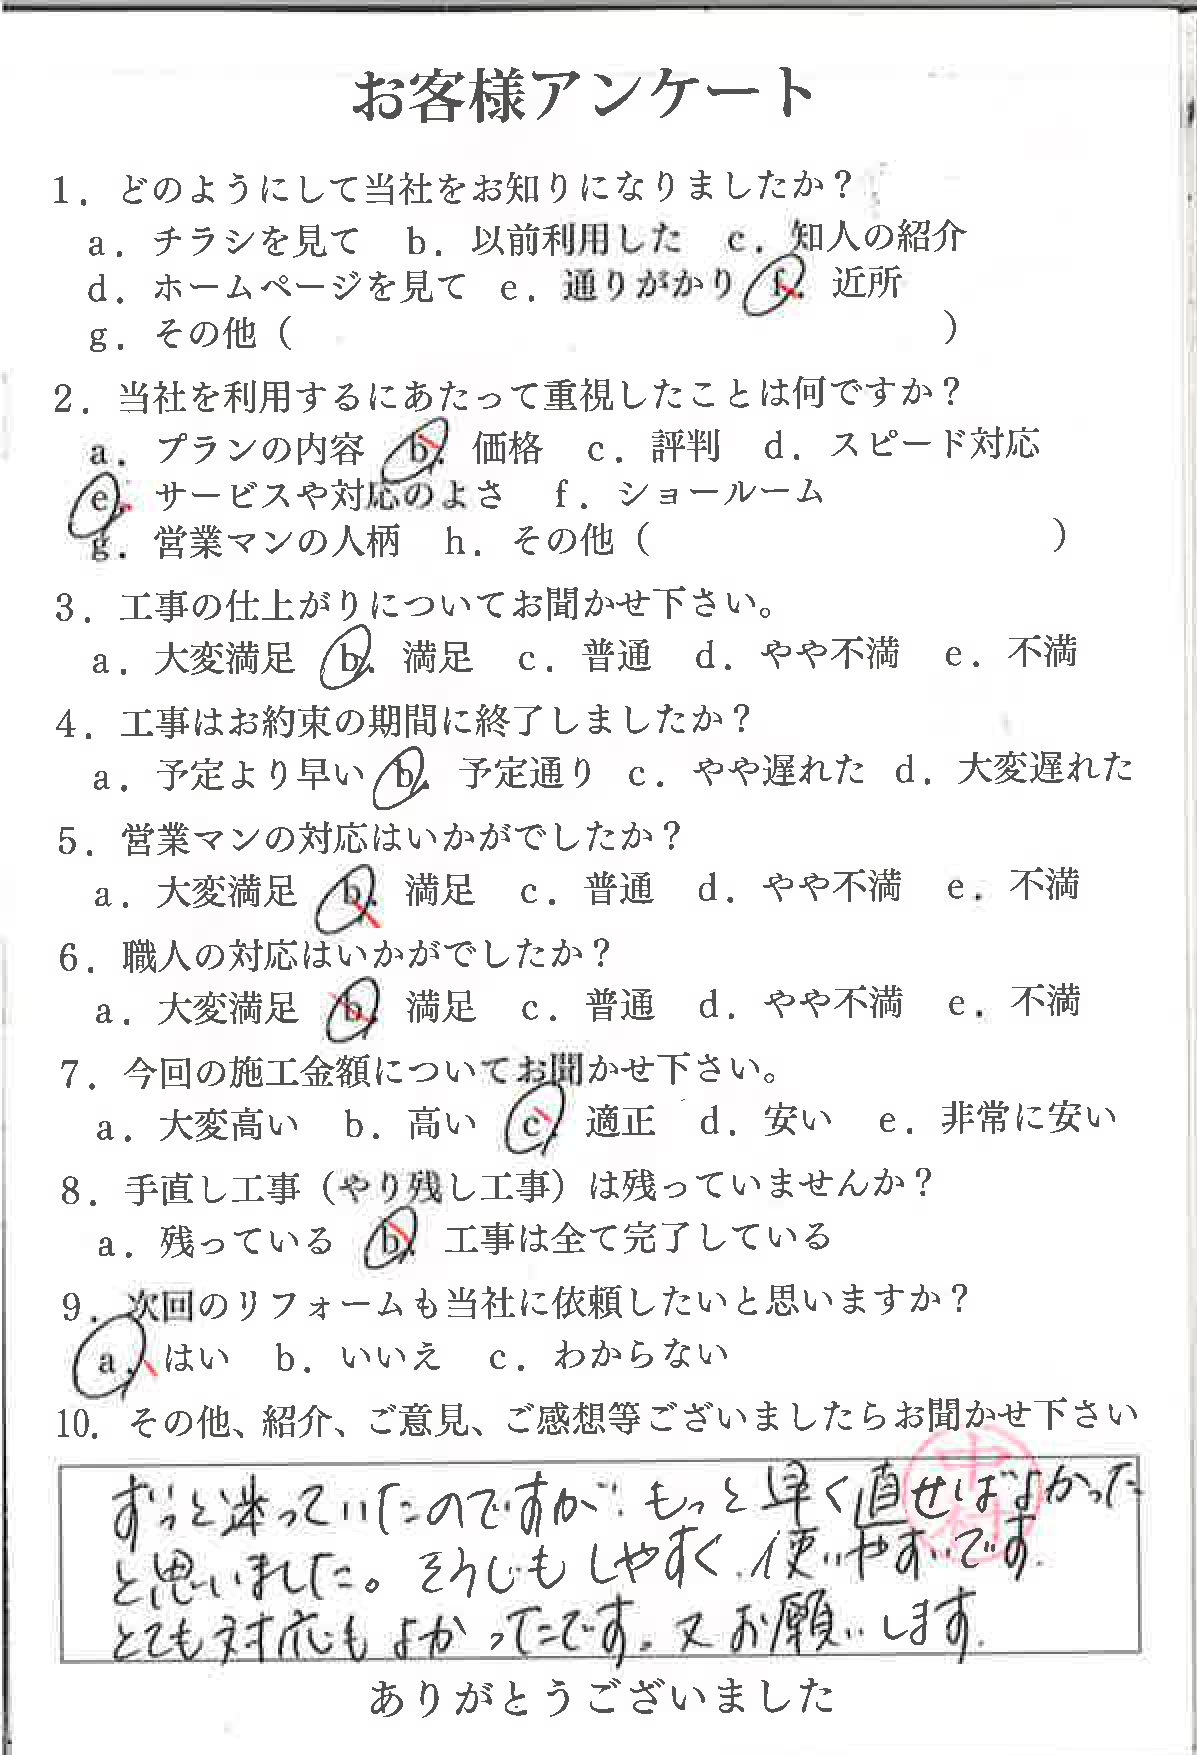 お客様アンケート
1．どのようにして当社をお知りになりましたか？
a．チラシを見て　b．以前利用した　c．知人の紹介
d．ホームページを見て　e．通りがかり　f．近所
g．その他（　　　　　　　　　　　　　　　　）
2．当社を利用するにあたって重視したことは何ですか？
a．プランの内容　b．価格　c．評判　d．スピード対応
e．サービスや対応のよさ　f．ショールーム
g．営業マンの人柄　h．その他（　　　　　　　　　　）
3．工事の仕上がりについてお聞かせ下さい。
a．大変満足　b．満足　c．普通　d．やや不満　e．不満
4．工事はお約束の期間に終了しましたか？
a．予定より早い　b．予定通り　c．やや遅れた　d．大変遅れた
5．営業マンの対応はいかがでしたか？
a．大変満足　b．満足　c．普通　d．やや不満　e．不満
6．職人の対応はいかがでしたか？
a．大変満足　b．満足　c．普通　d．やや不満　e．不満
7．今回の施工金額についてお聞かせ下さい。
a．大変高い　b．高い　c．適正　d．安い　e．非常に安い
8．手直し工事（やり残し工事）は残っていませんか？
a．残っている　b．工事は全て完了している
9．次回のリフォームも当社に依頼したいと思いますか？
a．はい　b．いいえ　c．わからない
10．その他、紹介、ご意見、ご感想等ございましたらお聞かせ下さい
中村
ずっと迷っていたのですが、もっと早く直せばよかった
と思いました。そうじもしやすく、使いやすいです。
とても対応もよかったです。又お願いします。
ありがとうございました